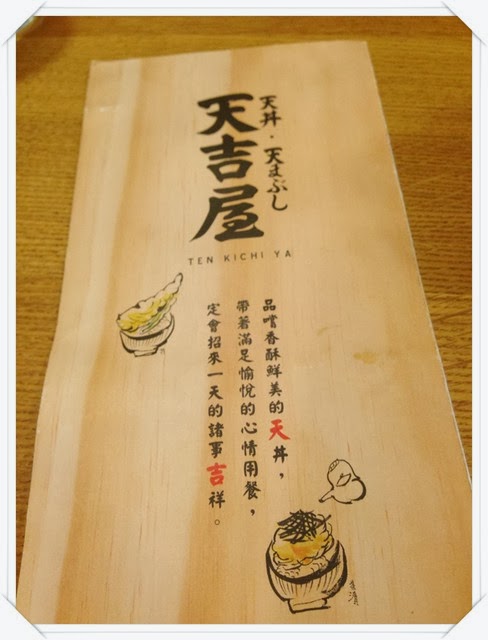 天丼・天まぶし
天吉屋
TEN KICHI YA
品嚐香酥鮮美的天丼，
帶著滿足愉悅的心情用餐，
定會招來一天的諸事吉祥。